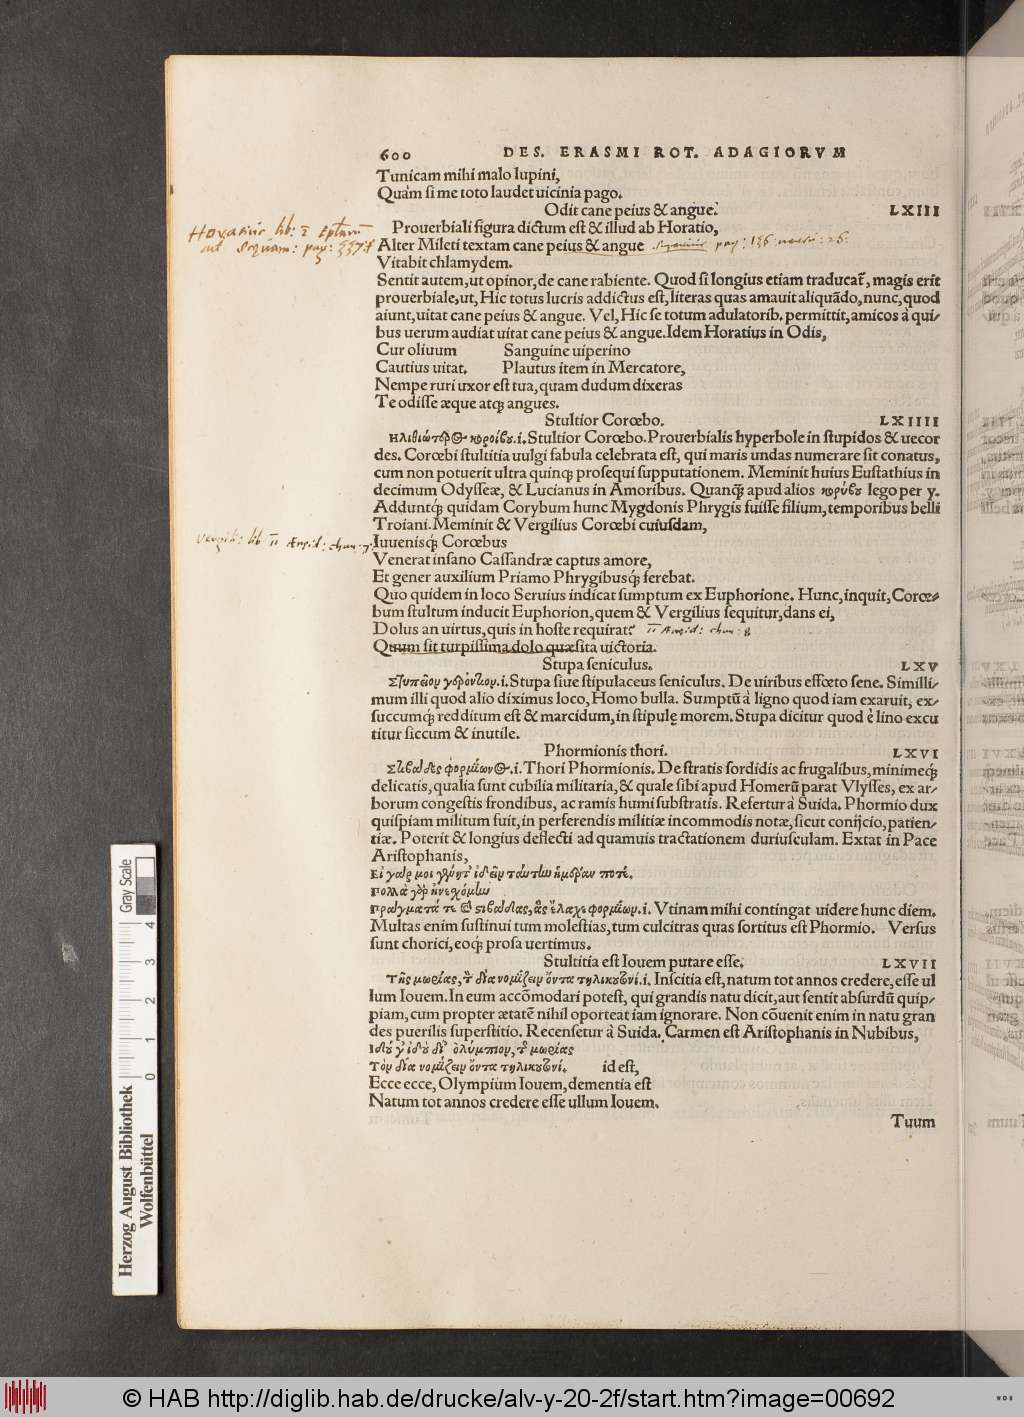 600 DES. ERASMI ROT. ADAGIORVM
Tunicam mihi malo lupini,
Quàm si me toto laudet uicinia pago.
Odit cane peius & angue. LXIII
Prouerbiali figura dictum est & illud ab Horatio,
Alter Mileti textam cane peius & angue
Vitabit chlamydem.
Sentit autem, ut opinor, de cane rabiente. Quod si longius etiam traducat᷑, magis erit
prouerbiale, ut, Hic totus lucris addictus est, literas quas amauit aliquãdo, nunc, quod
aiunt, uitat cane peius & angue. Vel, Hic se totum adulatorib. permittit, amicos à qui-
bus uerum audiat uitat cane peius & angue. Idem Horatius in Odis,
Cur oliuum Sanguine uiperino
Cautius uitat. Plautus item in Mercatore,
Nempe ruri uxor est tua, quam dudum dixeras
Te odisse æque atq; angues.
Stultior Corœbo. LXIIII
Ηλιθιώτερος κοροίβου .i. Stultior Corœbo. Prouerbialis hyperbole in stupidos & uecor
des. Corœbi stultitia uulgi fabula celebrata est, qui maris undas numerare sit conatus,
cum non potuerit ultra quinq; prosequi supputationem. Meminit huius Eustathius in
decimum Odysseæ, & Lucianus in Amoribus. Quanq̃ apud alios κορύβου lego per y.
Adduntq́; quidam Corybum hunc Mygdonis Phrygis fuisse filium, temporibus belli
Troiani. Meminit & Vergilius Corœbi cuiusdam,
Iuuenisq́; Corœbus
Venerat insano Cassandræ captus amore,
Et gener auxilium Priamo Phrygibusq́; ferebat.
Quo quidem in loco Seruius indicat sumptum ex Euphorione. Hunc, inquit, Corœ-
bum stultum inducit Euphorion, quem & Vergilius sequitur, dans ei,
Dolus an uirtus, quis in hoste requirat?
Quum sit turpissima dolo quæsita uictoria.
Stupa seniculus. LXV
Στυπεῖον γερόντιον .i. Stupa siue stipulaceus seniculus. De uiribus effœto sene. Simillimum-
mum illi quod alio diximus loco, Homo bulla. Sumptũ à ligno quod iam exaruit, ex-
succumq́; redditum est & marcidum, in stipulę morem. Stupa dicitur quod è lino excu
titur siccum & inutile.
Phormionis thori. LXVI
Στιβάδες φορμίωνος .i. Thori Phormionis. De stratis sordidis ac frugalibus, minimeq́;
delicatis, qualia sunt cubilia militaria, & quale sibi apud Homerũ parat Vlysses, ex ar-
borum congestis frondibus, ac ramis humi substratis. Refertur à Suida. Phormio dux
quispiam militum fuit, in perferendis militiæ incommodis notæ, sicut conijcio, patien-
tiæ. Poterit & longius deflecti ad quamuis tractationem duriusculam. Extat in Pace
Aristophanis,
Εἰ γάρ μοι γένοιτ᾽ ἰδεῖν ταύτην ἡμέραν ποτέ.
Πολλὰ γὰρ ἠνεχόμην
Πράγματά τε καὶ στιβάδας, ἃς ἔλαχε φορμίων .i. Vtinam mihi contingat uidere hunc diem.
Multas enim sustinui tum molestias, tum culcitras quas sortitus est Phormio. Versus
sunt chorici, eoq́; prosa uertimus.
Stultitia est Iouem putare esse. LXVII
Τῆς μωρίας, τὸ δία νομίζειν ὄντα τηλικουτονί .i. Inscitia est, natum tot annos credere, esse ul
lum Iouem. In eum accõmodari potest, qui grandis natu dicit, aut sentit absurdũ quip-
piam, cum propter ætatẽ nihil oporteat iam ignorare. Non cõuenit enim in natu gran
des puerilis superstitio. Recensetur à Suida. Carmen est Aristophanis in Nubibus,
Ιδού γ᾽ ἰδοὺ δί᾽ ὀλύμπιον, τῆς μωρίας
Τὸν δία νομίζειν ὄντα τηλικουτονί. id est,
Ecce ecce, Olympium Iouem, dementia est
Natum tot annos credere esse ullum Iouem.
Tuum
Gray Scale
4
3
2
1
0
Herzog August Bibliothek
Wolfenbüttel
© HAB http://diglib.hab.de/drucke/alv-y-20-2f/start.htm?image=00692